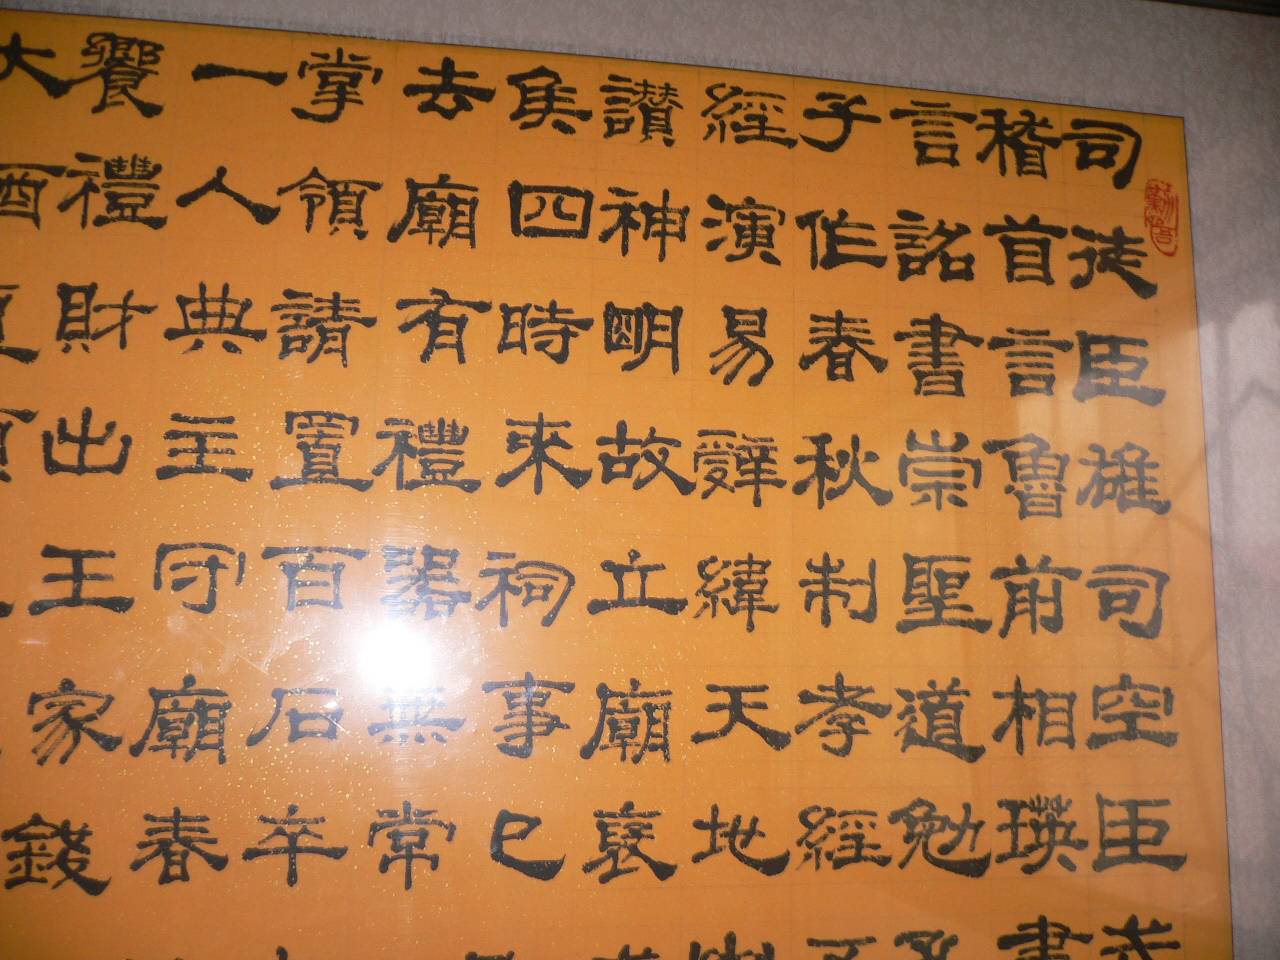 司徒臣雄司空臣戒
稽首言魯前相瑛書
言詔書崇聖道勉
子作春秋制孝經
經演易辭緯天地
讚神明故立廟襃
侯四時來祠事已
去廟有禮器無常
掌領請置百石卒
一人典主守廟春
饗禮財出王家錢
大酒
勤